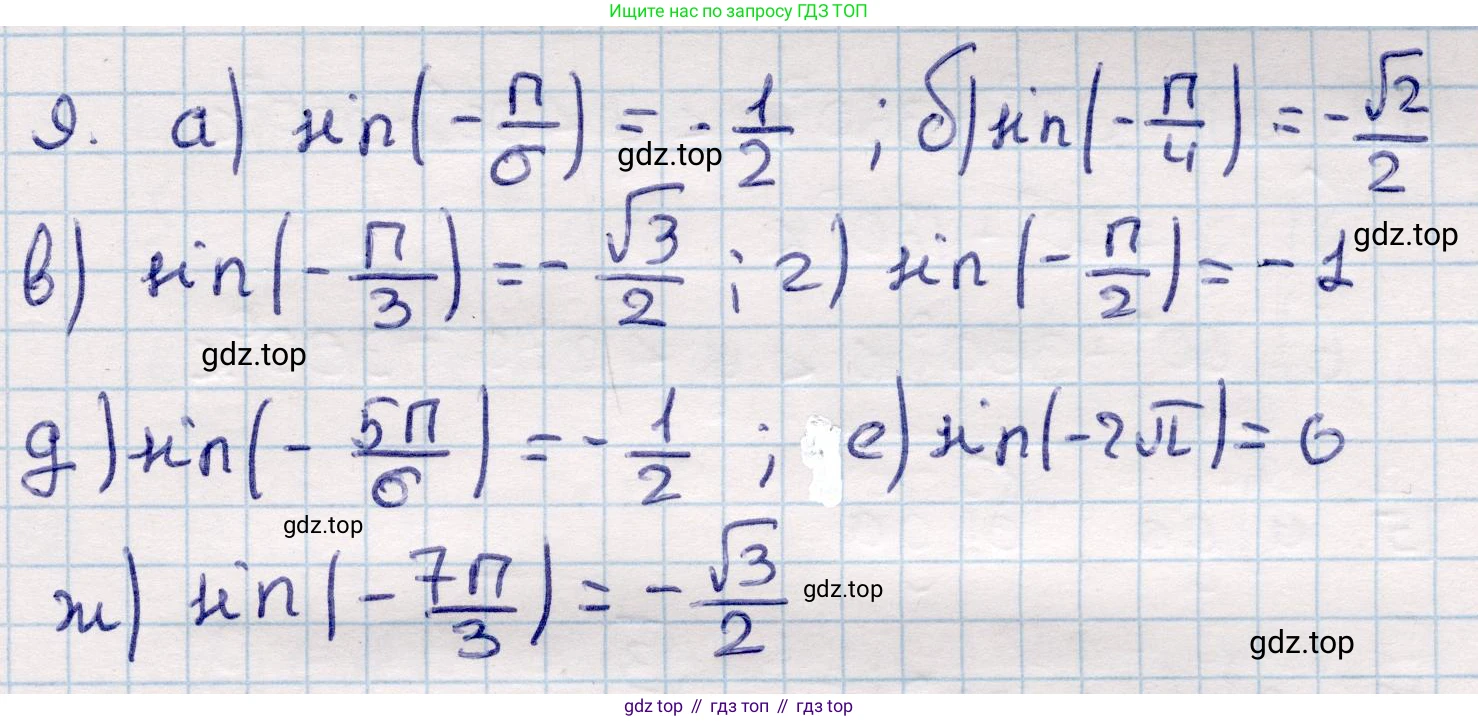 Ищите нас по запросу ГДЗ ТОП
9. а) sin(-π/6) = -1/2 ; б) sin(-π/4) = -√2/2
gdz.top
gdz.top
в) sin(-π/3) = -√3/2 ; г) sin(-π/2) = -1
gdz.top
д) sin(-5π/6) = -1/2 ; е) sin(-2π) = 0
gdz.top
ж) sin(-7π/3) = -√3/2
gdz.top
gdz.top
gdz top // гдз топ // гдз top